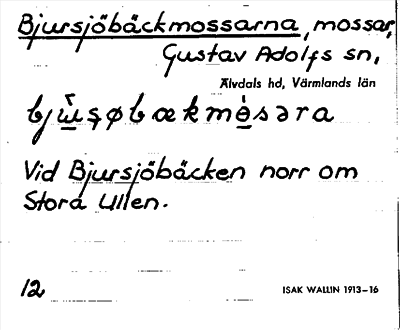 Bjursjöbäckmossarna, mossar,
Gustav Adolfs sn,
Älvdals hd, Värmlands län
Vid Bjursjöbäcken norr om
Stora Ullen.
12 ISAK WALLIN 1913–16